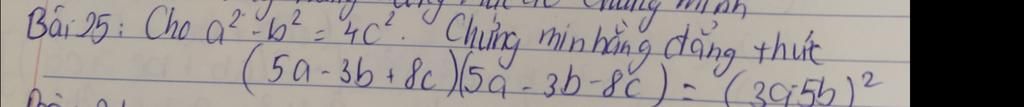 chứng minh
Bài 25: Cho a² - b² = 4c². Chứng minh hằng đẳng thức
(5a - 3b + 8c)(5a - 3b - 8c) = (3a-5b)²